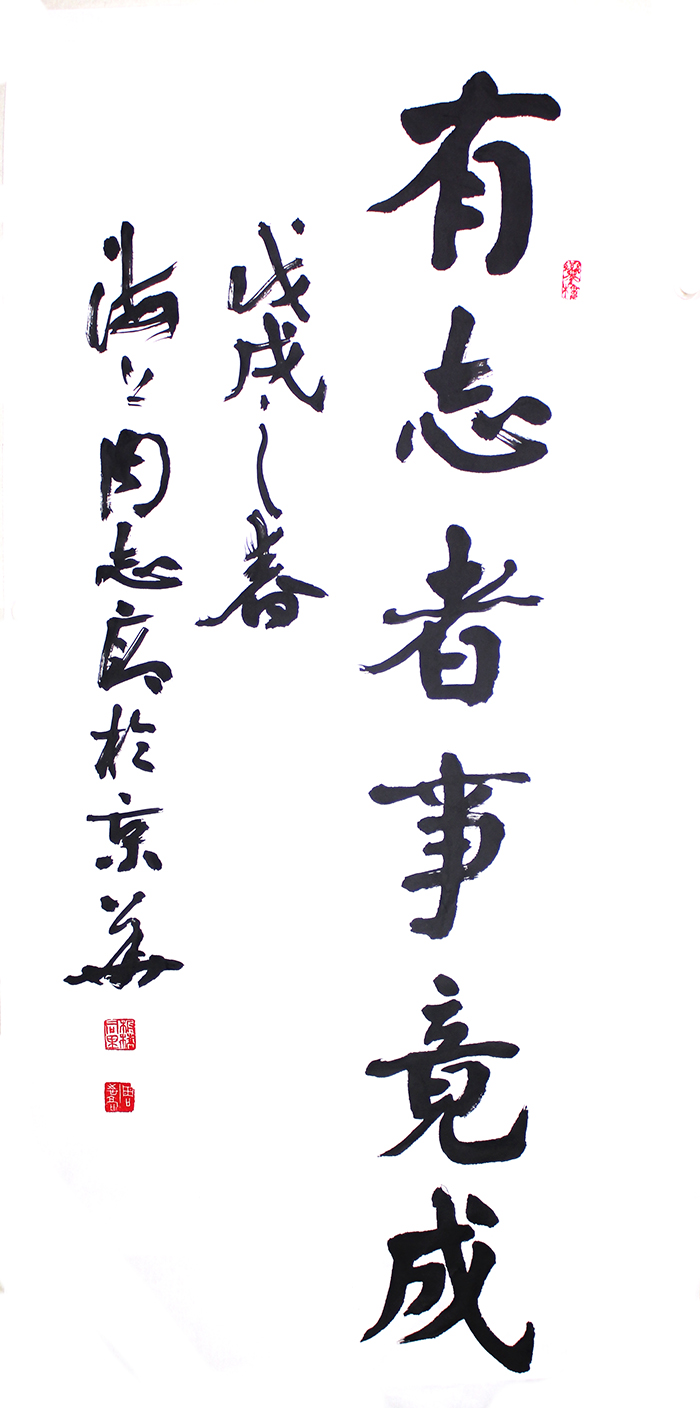 有志者事竟成
戊戌之春
海上周志高於京華